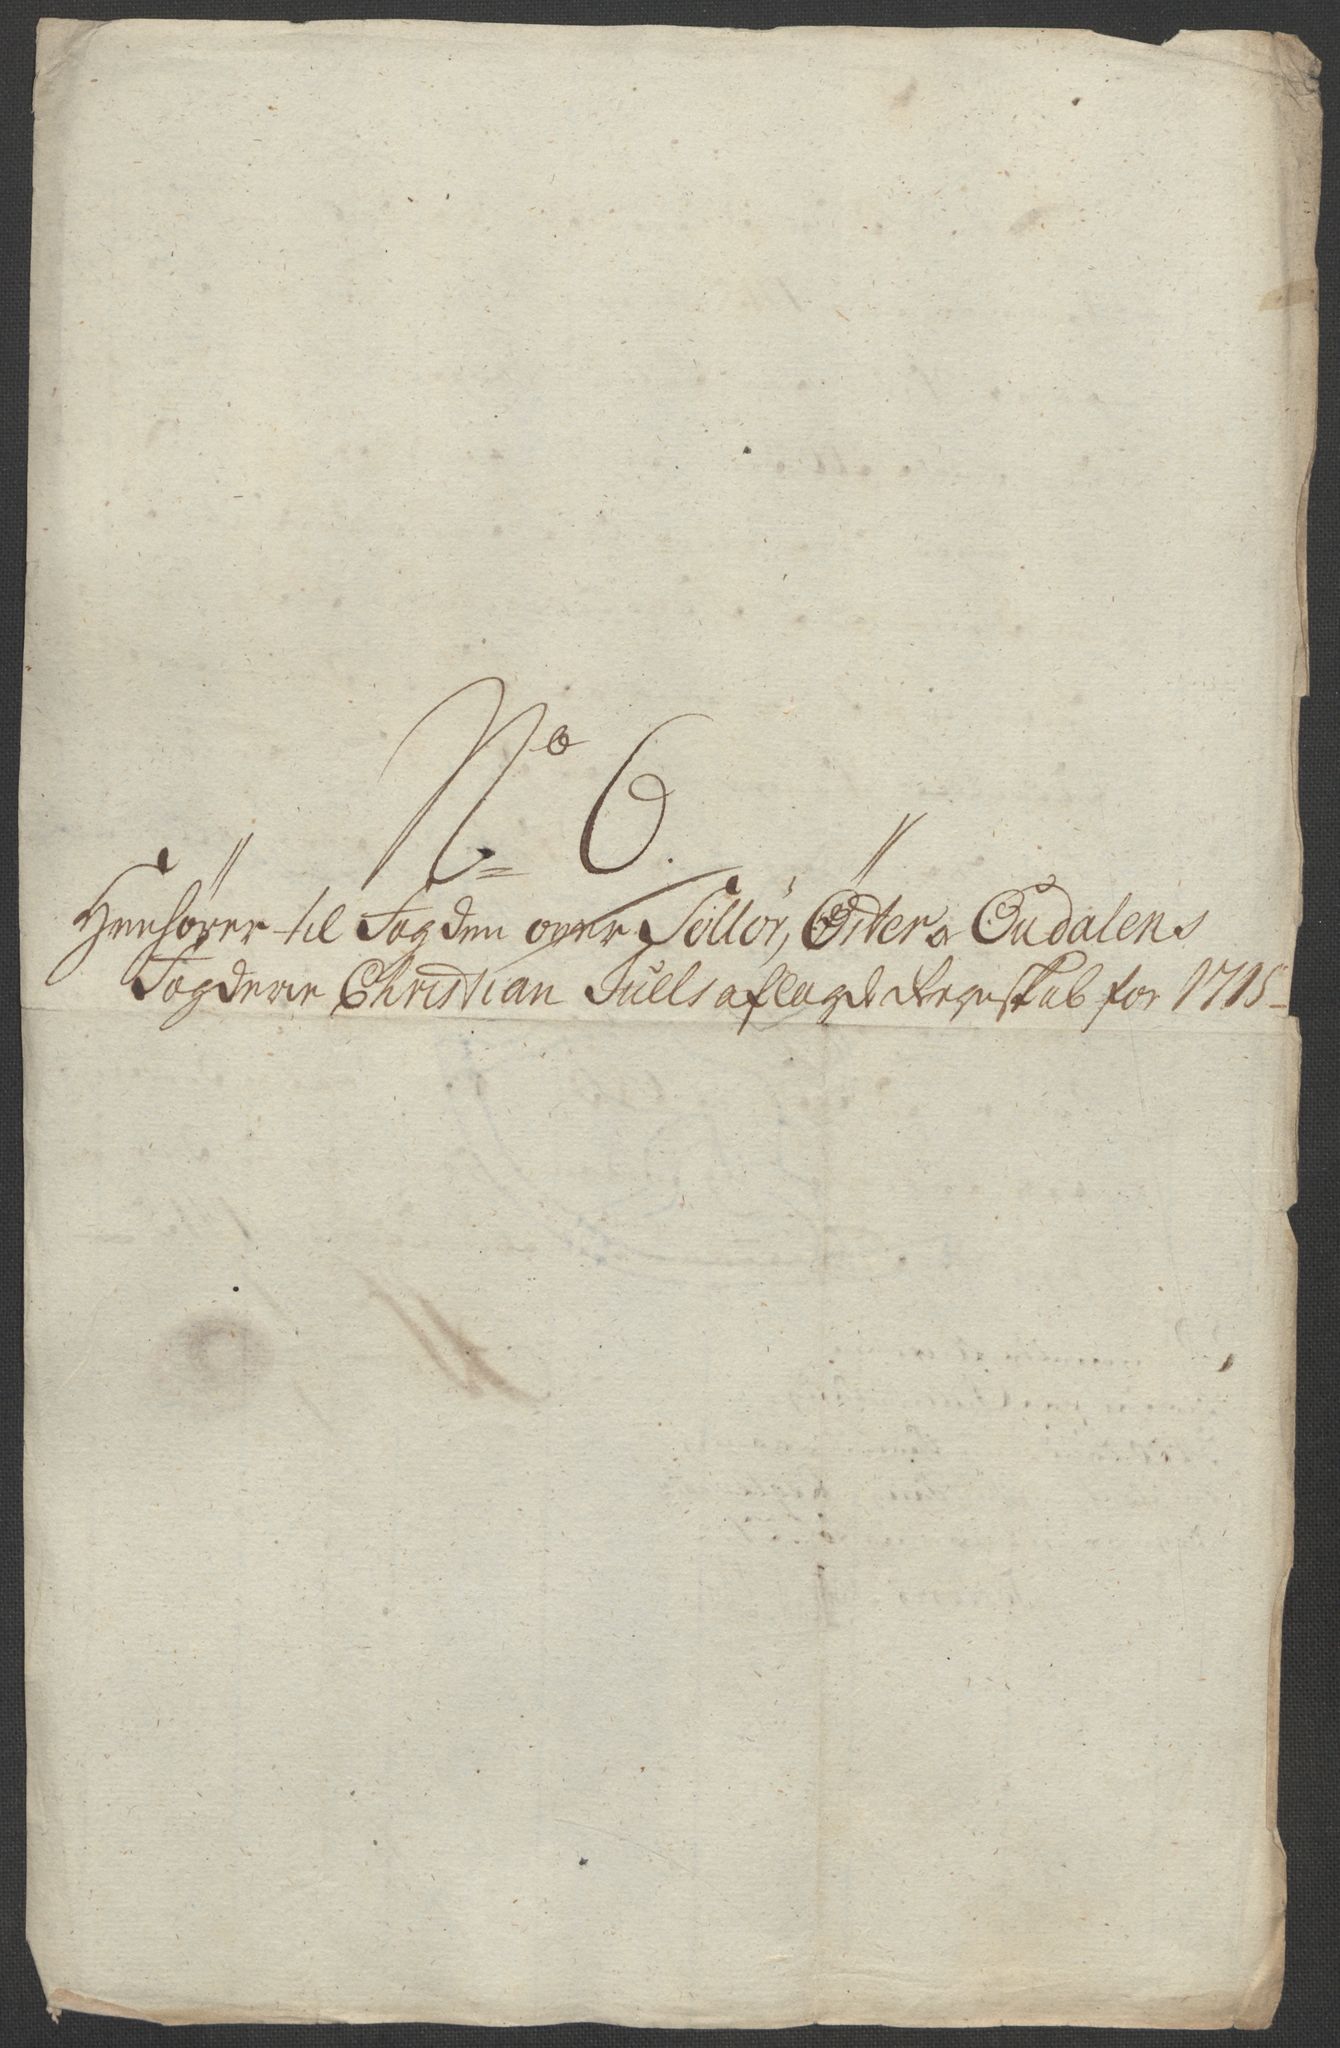 No 6.
Henhører til Fogden over Sollør, Øster o Oudalens
Fogderie Christian Juells aflagde Regnskab for 1715